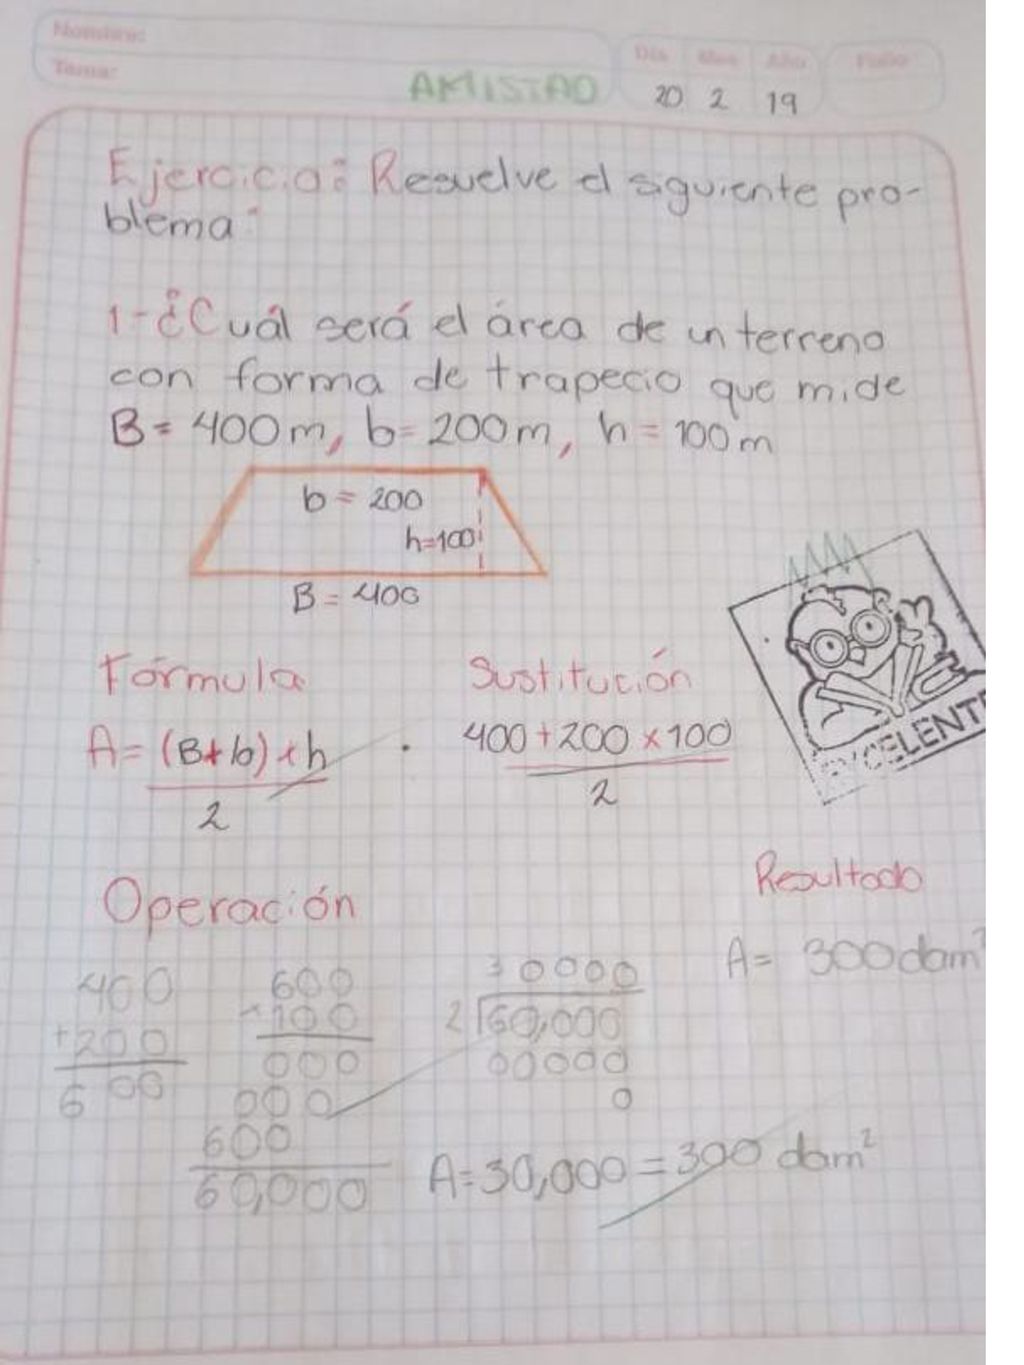 Nombre:
Tema:
AMISTAD
Día Mes Año Folio
20 2 19
Ejercicio: Resuelve el siguiente pro-
blema:
1-¿Cuál será el área de un terreno
con forma de trapecio que mide
B= 400m, b= 200m, h= 100m
b= 200
h=100
B= 400
Fórmula
Sustitución
A= (B+b)xh
2
400+200x100
2
EXCELENTE
Operación
Resultado
A= 300dam²
400
+200
600
600
×100
000
000
600
60,000
30000
2 60,000
00000
0
A=30,000=300 dam²